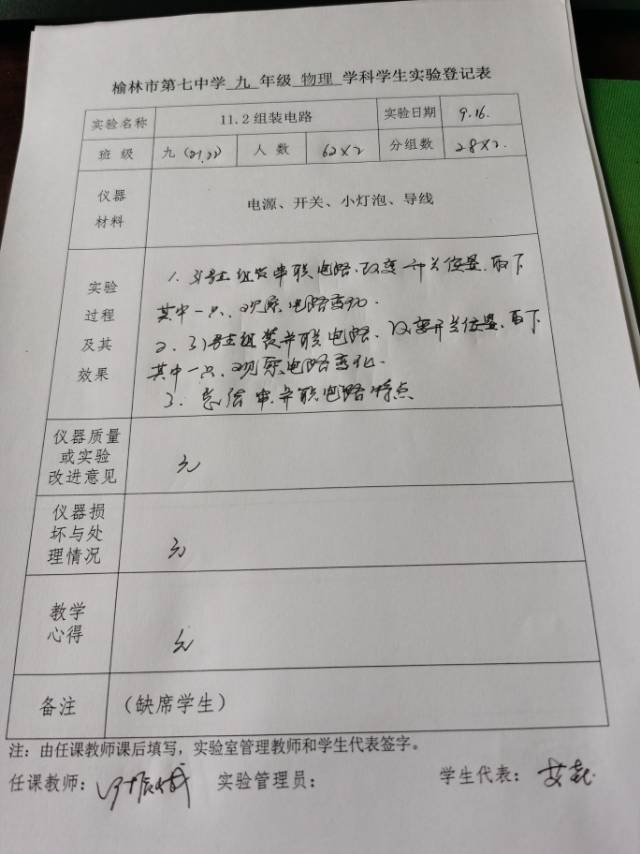 榆林市第七中学 九 年级 物理 学科学生实验登记表
实验名称 11.2组装电路 实验日期 9.16.
班 级 九(21,22) 人 数 62×2 分组数 28×2.
仪器材料 电源、开关、小灯泡、导线
实验过程及其效果
1. 组装串联电路.改变开关位置.取下
其中一只,观察电路变化.
2. 组装并联电路.改变开关位置.取下
其中一只,观察电路变化.
3. 总结串.并联电路特点
仪器质量或实验改进意见 无
仪器损坏与处理情况 无
教学心得 无
备注 (缺席学生)
注:由任课教师课后填写,实验室管理教师和学生代表签字。
任课教师: 实验管理员: 学生代表: